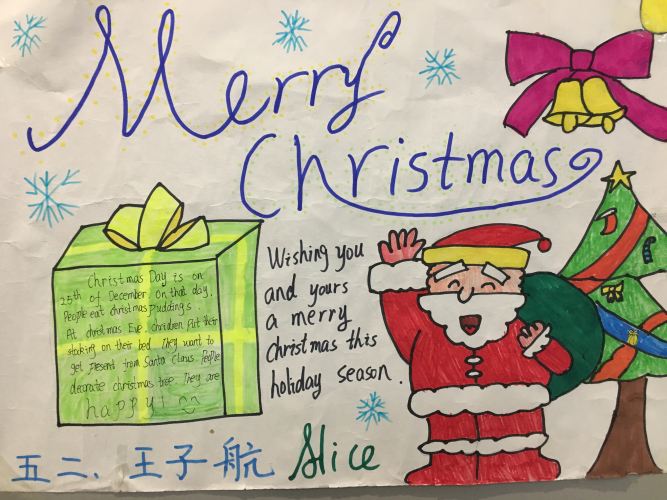 Merry
Christmas
Christmas Day is on
25th of December. On that day,
People eat christmas puddings.
At christmas Eve. Children Put their
stoking on their bed They want to
get Present from Santa Claus. People
decorate christmas tree. They are
happy!
Wishing you
and yours
a merry
christmas this
holiday season.
五二、王子航 Alice